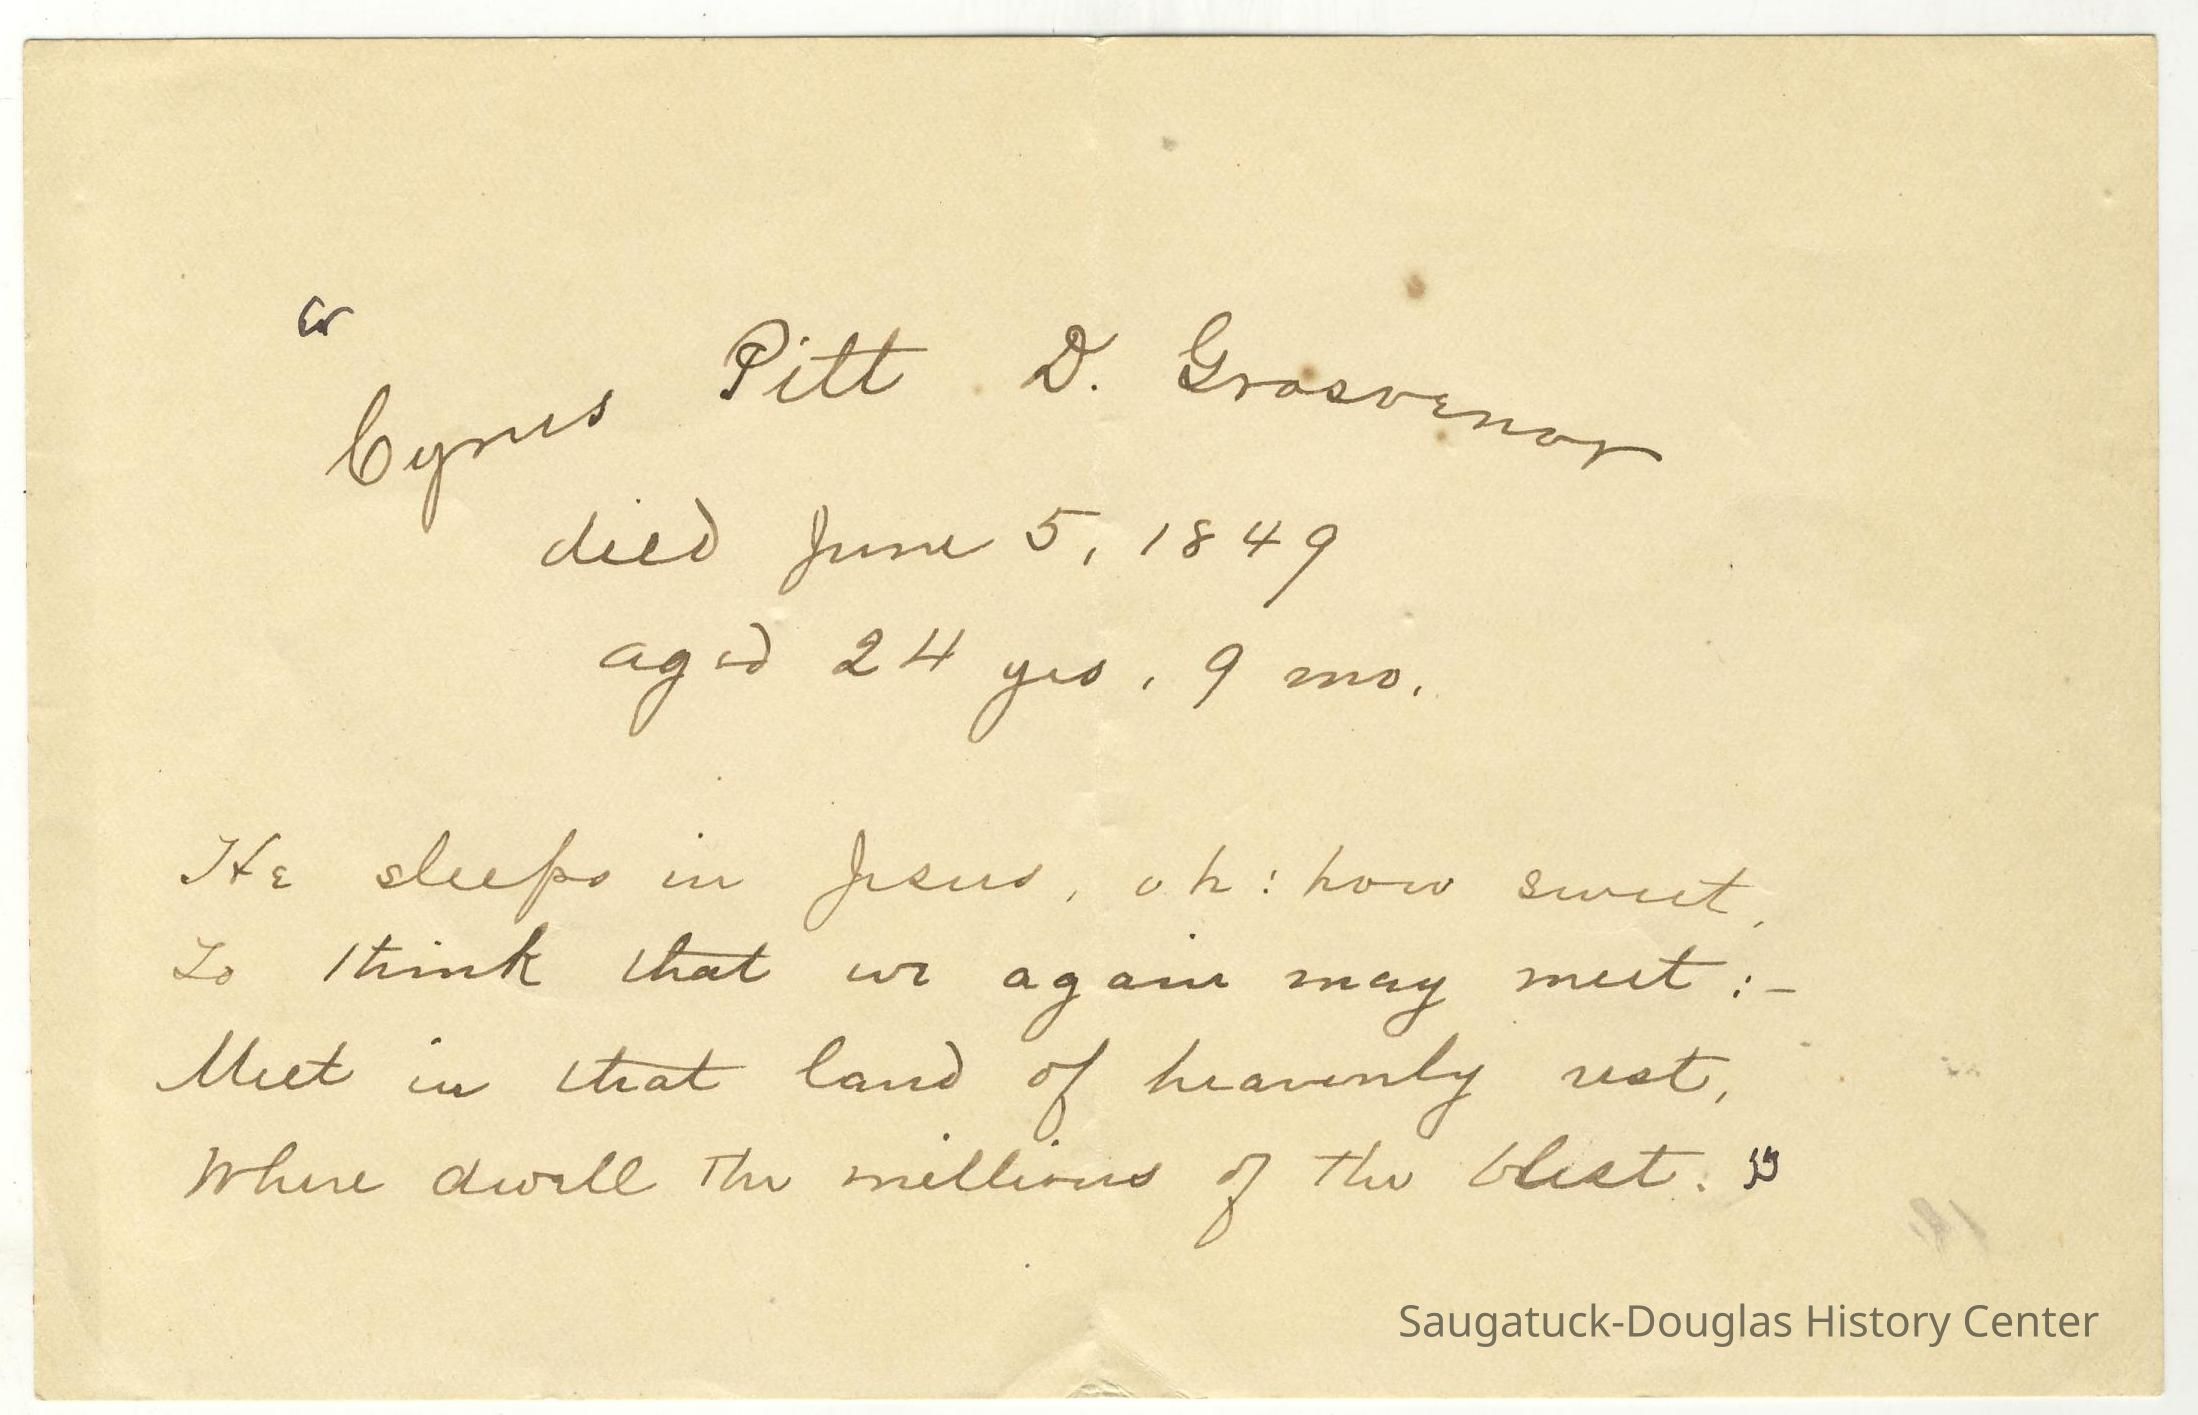 "
Cyrus Pitt D. Grosvenor
died June 5, 1849
aged 24 yrs, 9 mo.
He sleeps in Jesus, oh! how sweet,
To think that we again may meet:-
Meet in that land of heavenly rest,
Where dwell the millions of the blest."
Saugatuck-Douglas History Center